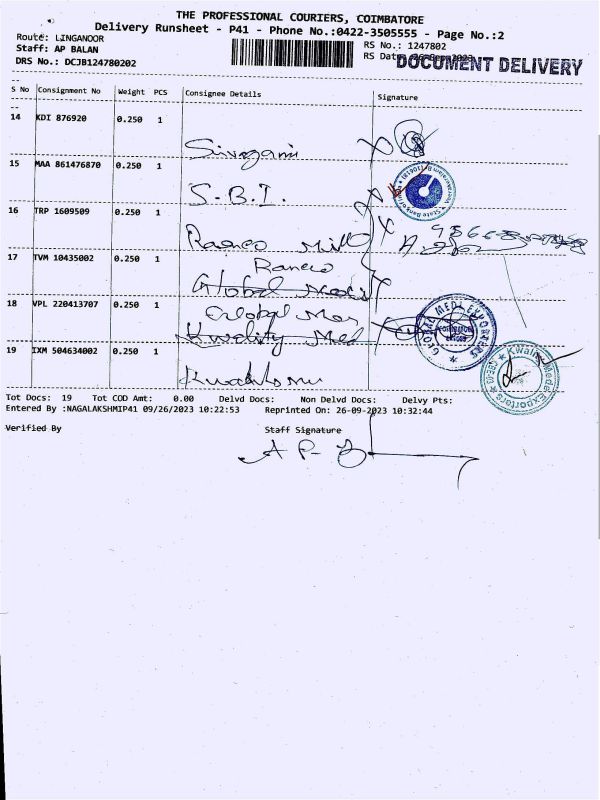 THE PROFESSIONAL COURIERS, COIMBATORE
Delivery Runsheet - P41 - Phone No.:0422-3505555 - Page No.:2
Route: LINGANOOR
RS No.: 1247802
Staff: AP BALAN
RS Date: 26-Sep-2023
DOCUMENT DELIVERY
DRS No.: DCJB124780202
S No Consignment No Weight PCS Consignee Details Signature
14 KDI 876920 0.250 1
Sivagami
15 MAA 861476870 0.250 1
S.B.I.
16 TRP 1609509 0.250 1
17 TVM 10435002 0.250 1
Global
18 VPL 220413707 0.250 1
Global
Kwality Med
GLOBAL MEDI EXPORTERS
19 IXM 504634002 0.250 1
Tot Docs: 19 Tot COD Amt: 0.00 Delvd Docs: Non Delvd Docs: Delvy Pts:
Entered By :NAGALAKSHMIP41 09/26/2023 10:22:53 Reprinted On: 26-09-2023 10:32:44
Verified By Staff Signature